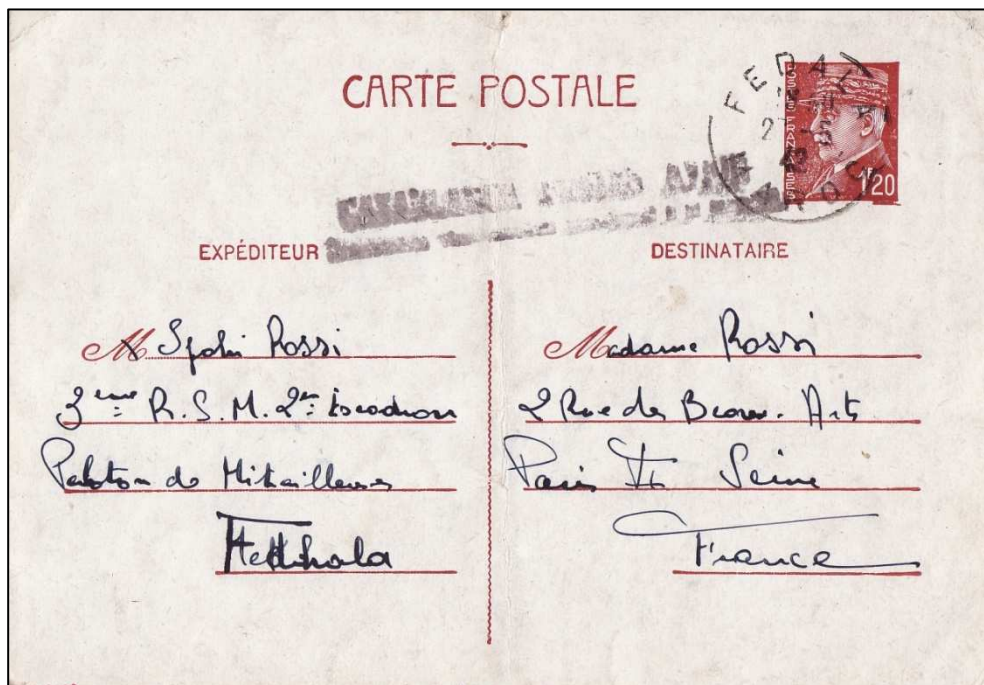 CARTE POSTALE
POSTES FRANÇAISES
1F20
FEDALA
MAROC
EXPÉDITEUR
M Spahi Rossi
3eme R.S.M. 2e Escadron
Peloton de Mitrailleuses
Fedhala
DESTINATAIRE
Madame Rossi
2 Rue des Beaux-Arts
Paris VI Seine
France